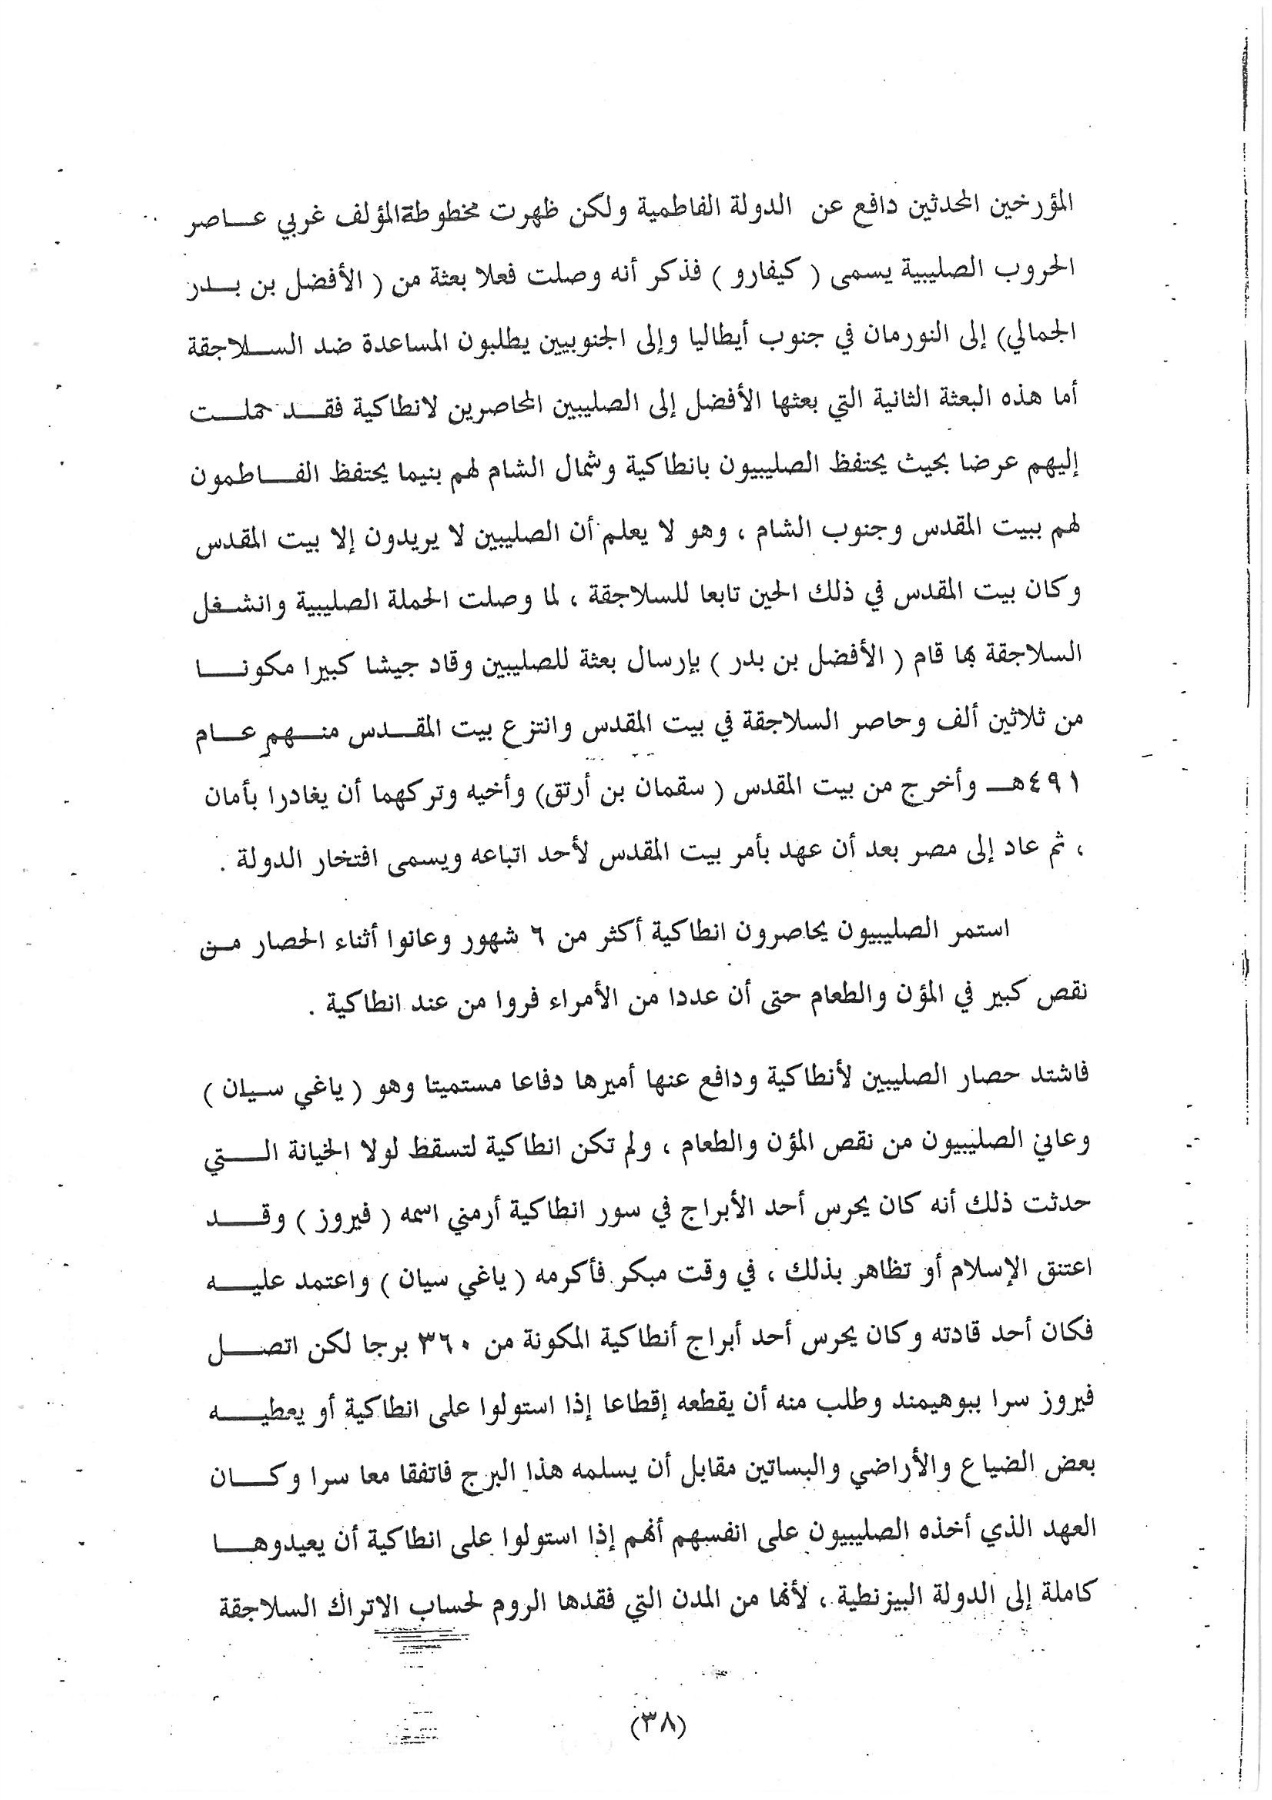 المؤرخين المحدثين دافع عن الدولة الفاطمية ولكن ظهرت مخطوطةالمؤلف غربي عـاصر
الحروب الصليبية يسمى ( كيفارو ) فذكر أنه وصلت فعلا بعثة من ( الأفضل بن بـدر
الجمالي) إلى النورمان في جنوب أيطاليا وإلى الجنوبيين يطلبون المساعدة ضد السـلاجقة
أما هذه البعثة الثانية التي بعثها الأفضل إلى الصليبين المحاصرين لانطاكية فقـد حملـت
إليهم عرضا بحيث يحتفظ الصليبيون بانطاكية وشمال الشام لهم بنيما يحتفظ الفـاطمون
لهم ببيت المقدس وجنوب الشام ، وهو لا يعلم أن الصليبين لا يريدون إلا بيت المقدس
وكان بيت المقدس في ذلك الحين تابعا للسلاجقة ، لما وصلت الحملة الصليبية وانشـغل
السلاجقة بها قام ( الأفضل بن بدر ) بإرسال بعثة للصليبين وقاد جيشا كبيرا مكونـا
من ثلاثين ألف وحاصر السلاجقة في بيت المقدس وانتزع بيت المقـدس منـهم عـام
٤٩١هـ وأخرج من بيت المقدس ( سقمان بن أرتق) وأخيه وتركهما أن يغادرا بأمان
، ثم عاد إلى مصر بعد أن عهد بأمر بيت المقدس لأحد اتباعه ويسمى افتخار الدولة .
استمر الصليبيون يحاصرون انطاكية أكثر من ٦ شهور وعانوا أثناء الحصار مـن
نقص كبير في المؤن والطعام حتى أن عددا من الأمراء فروا من عند انطاكية .
فاشتد حصار الصليبين لأنطاكية ودافع عنها أميرها دفاعا مستميتا وهو ( ياغي سيان )
وعانئ الصليبيون من نقص المؤن والطعام ، ولم تكن انطاكية لتسقط لولا الخيانة الـتي
حدثت ذلك أنه كان يحرس أحد الأبراج في سور انطاكية أرمني اسمه ( فيروز ) وقـد
اعتنق الإسلام أو تظاهر بذلك ، في وقت مبكر فأكرمه ( ياغي سيان ) واعتمد عليـه
فكان أحد قادته وكان يحرس أحد أبراج أنطاكية المكونة من ٣٦٠ برجا لكن اتصـل
فيروز سرا ببوهيمند وطلب منه أن يقطعه إقطاعا إذا استولوا على انطاكية أو يعطيـه
بعض الضياع والأراضي والبساتين مقابل أن يسلمه هذا البرج فاتفقا معا سرا وكـان
العهد الذي أخذه الصليبيون على انفسهم أنهم إذا استولوا على انطاكية أن يعيدوهـا
كاملة إلى الدولة البيزنطية ، لأنها من المدن التي فقدها الروم لحساب الاتراك السلاجقة
(٣٨)